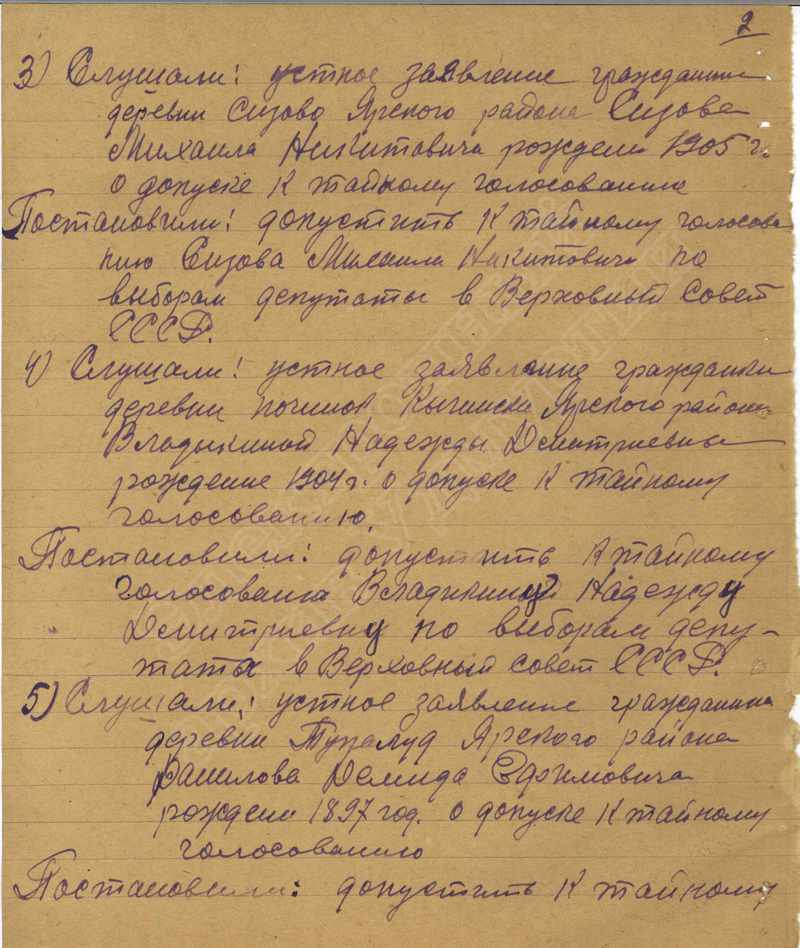 2
3) Слушали: устное заявление гражданина
деревни Сизово Ярского района Сизова
Михаила Никитовича рождени 1905 г.
о допуске к тайному голосованию
Постановили: допустить к тайному голосова
нию Сизова Михаила Никитовича по
выборам депутаты в Верховный Совет
СССР.
4) Слушали: устное заявление гражданки
деревни починок Ярского района
Владыкиной Надежды Дмитриевны
рождение 1904 г. о допуске к тайному
голосованию.
Постановили: допустить к тайному
голосования Владыкину Надежду
Дмитриевну по выборам депу-
тата в Верховный Совет СССР.
5) Слушали: устное заявление гражданина
деревни Тупалуд Ярского района
Данилова Демида Ефимовича
рождени 1897 год. о допуске к тайному
голосованию
Постановили: допустить к тайному